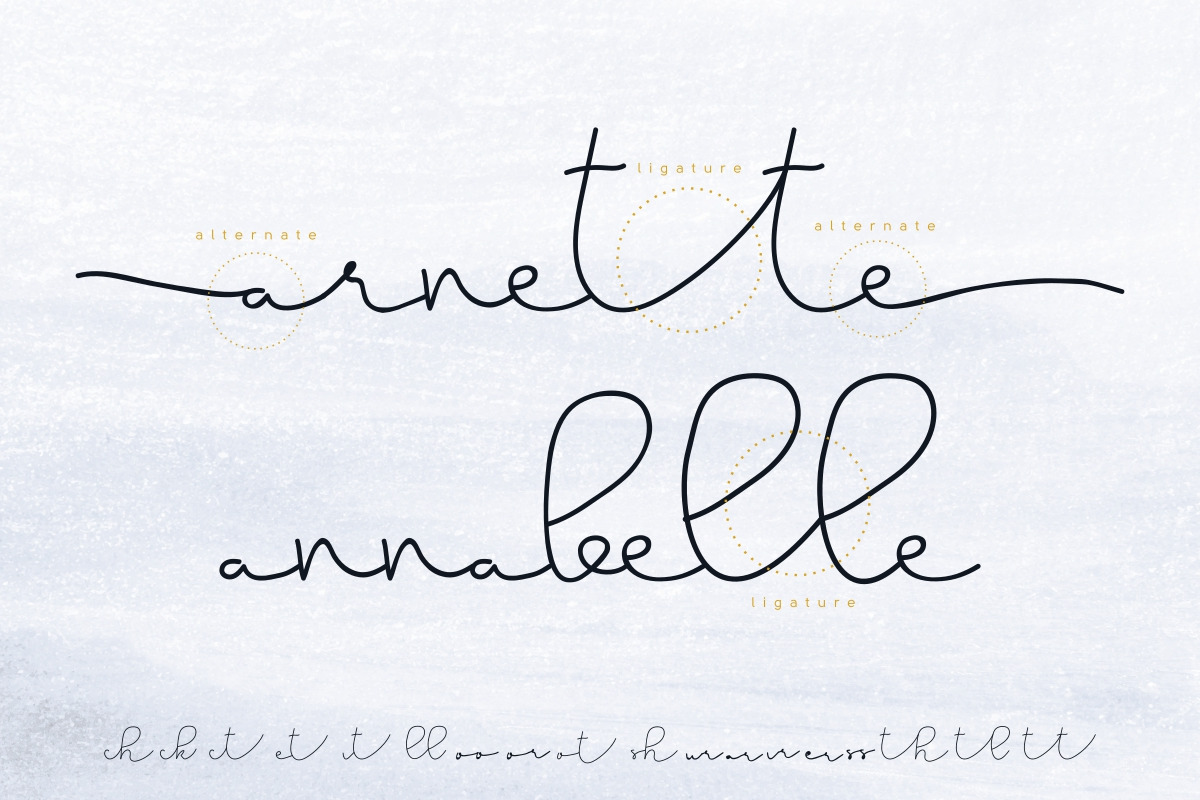 ligature
alternate
alternate
arnette
annabelle
ligature
ch ck ct et it ll oo or ot sh ur ar er ss th tl tt